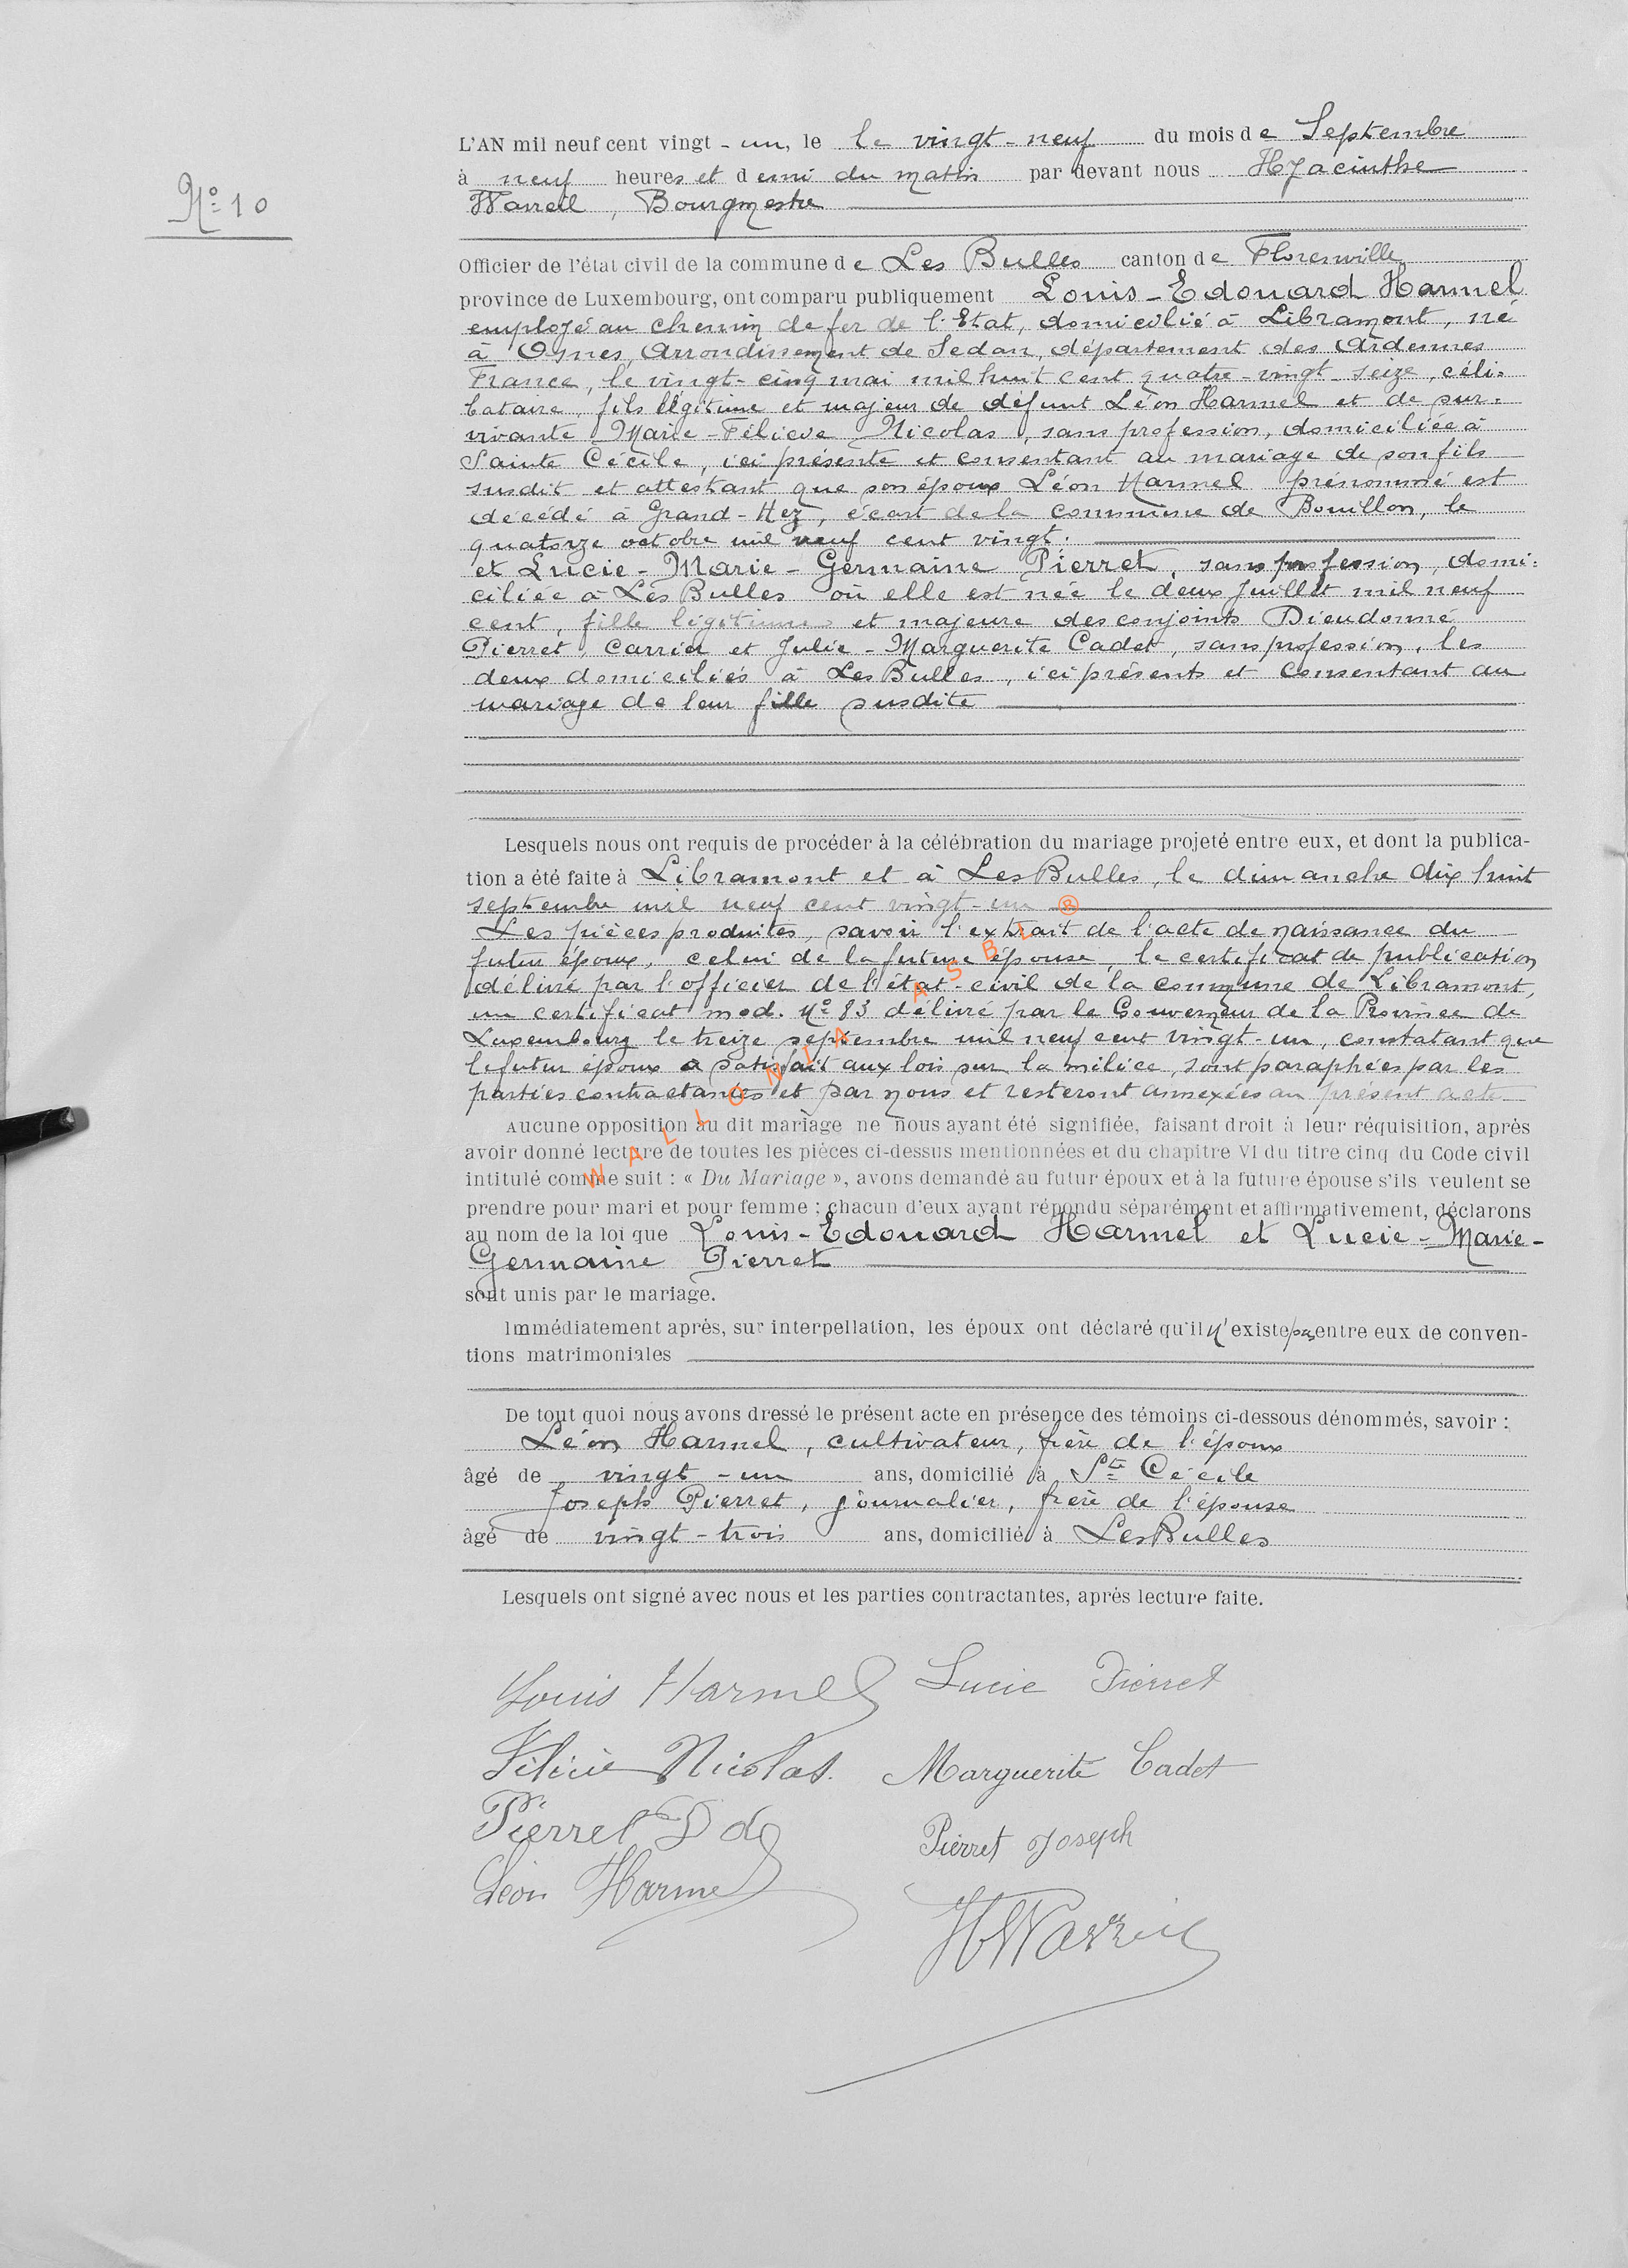 N° 10
L'AN mil neuf cent vingt - un, le le vingt-neuf du mois de Septembre
à neuf heures et demi du matin par devant nous Hyacinthe
Bourgmestre
Officier de l'état civil de la commune de Les Bulles canton de Florenville
province de Luxembourg, ont comparu publiquement Louis-Edouard Harmel
employé au chemin de fer de l'Etat, domicilié à Libramont, né
à Osnes, Arrondissement de Sedan, département des Ardennes
France, le vingt-cinq mai mil huit cent quatre-vingt-seize, céli=
bataire, fils légitime et majeur de défunt Léon Harmel et de sur=
vivante Marie-Félicie Nicolas, sans profession, domiciliée à
Sainte Cécile, ici présente et consentant au mariage de son fils
susdit et attestant que son époux Léon Harmel prénommé est
décédé à Grand-Hez, écart de la commune de Bouillon, le
quatorze octobre mil neuf cent vingt.
et Lucie-Marie-Germaine Pierret, sans profession, domi=
ciliée à Les Bulles où elle est née le deux Juillet mil neuf
cent, fille légitime et majeure des conjoints Dieudonné
Pierret, Carrier et Julie-Marguerite Cadet, sans profession, les
deux domiciliés à Les Bulles, ici présents et consentant au
mariage de leur fille susdite
Lesquels nous ont requis de procéder à la célébration du mariage projeté entre eux, et dont la publica-
tion a été faite à Libramont et à Les Bulles, le dimanche dix huit
septembre mil neuf cent vingt-un
Les pièces produites, savoir l'extrait de l'acte de naissance du
futur époux, celui de la future épouse, le certificat de publication
délivré par l'officier de l'état-civil de la commune de Libramont,
un certificat mod. N° 83 délivré par le Gouverneur de la Province de
Luxembourg le treize septembre mil neuf cent vingt-un, constatant que
le futur époux a satisfait aux lois sur la milice, sont paraphées par les
parties contractantes et par nous et resteront annexées au présent acte
Aucune opposition au dit mariage ne nous ayant été signifiée, faisant droit à leur réquisition, après
avoir donné lecture de toutes les pièces ci-dessus mentionnées et du chapitre VI du titre cinq du Code civil
intitulé comme suit : « Du Mariage », avons demandé au futur époux et à la future épouse s'ils veulent se
prendre pour mari et pour femme : chacun d'eux ayant répondu séparément et affirmativement, déclarons
au nom de la loi que Louis-Edouard Harmel et Lucie-Marie-
Germaine Pierret
sont unis par le mariage.
Immédiatement après, sur interpellation, les époux ont déclaré qu'il n'existe pas entre eux de conven-
tions matrimoniales
De tout quoi nous avons dressé le présent acte en présence des témoins ci-dessous dénommés, savoir :
Léon Harmel, cultivateur, frère de l'époux
âgé de vingt-un ans, domicilié à Ste Cécile
Joseph Pierret, journalier, frère de l'épouse
âgé de vingt-trois ans, domicilié à Les Bulles
Lesquels ont signé avec nous et les parties contractantes, après lecture faite.
Louis Harmel Lucie Pierret
Félicie Nicolas. Marguerite Cadet
Pierret Ddé
Pierret Joseph
Léon Harmel
WALLONIA ASBL ®